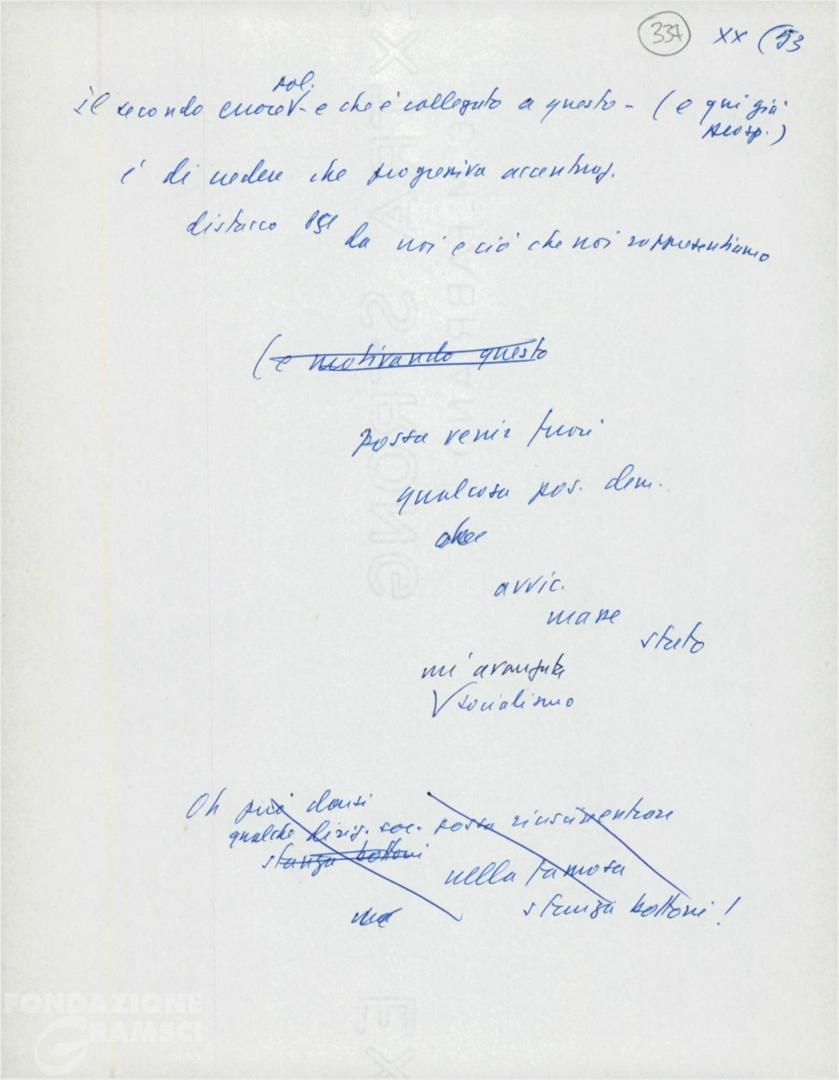 337 XX (53
pol.
il secondo cuore V - e che è collegato a questo - (e qui già
prosp.)
è di vedere che progressiva accentuaz.
distacco PSI da noi e ciò che noi rappresentiamo
(e motivando questo
possa venir fuori
qualcosa pos. dem.
che
avvic.
masse
stato
un'avanzata
V socialismo
Oh può darsi
qualche dirig. soc. possa rientrare
stanza bottoni
nella famosa
ma
stanza bottoni!
FONDAZIONE
GRAMSCI